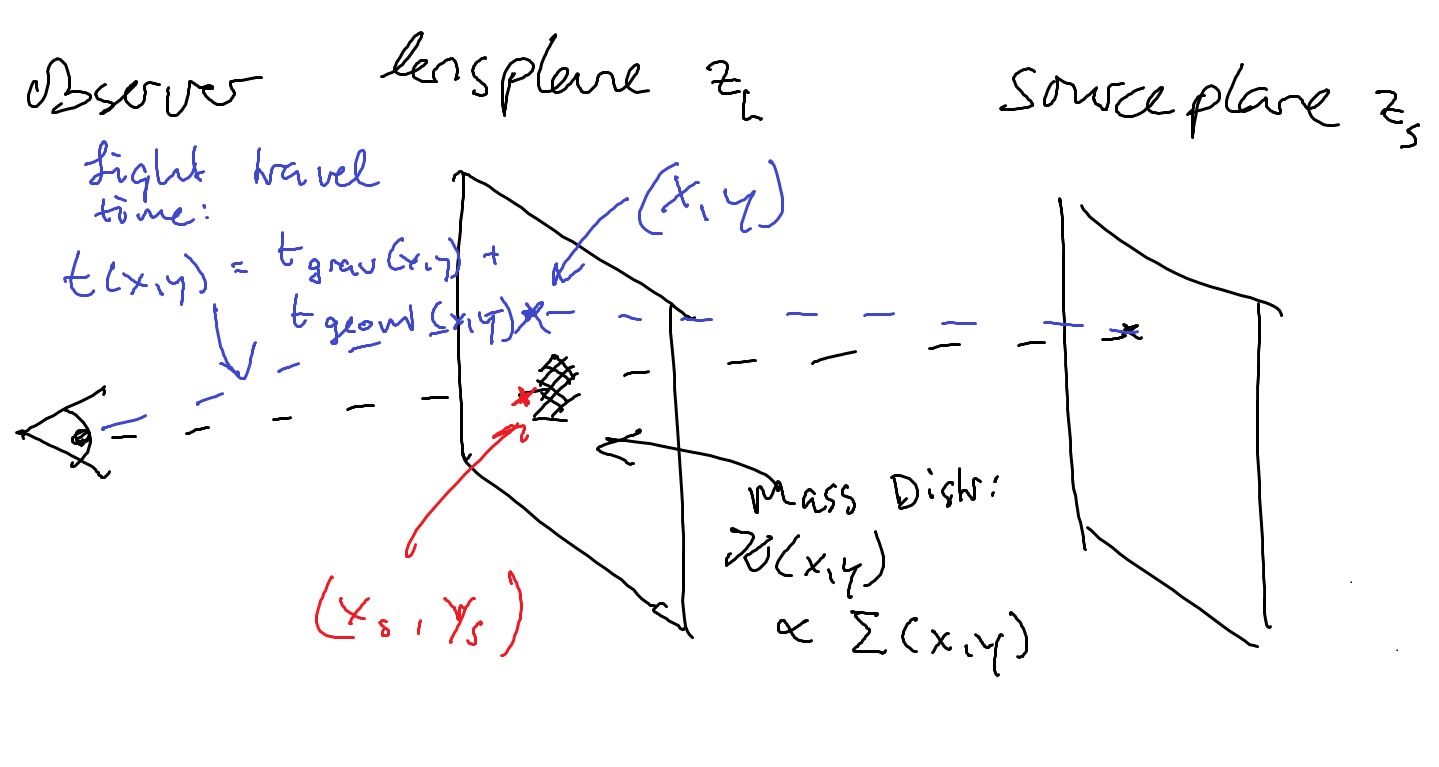 observer
lensplane z_L
sourceplane z_s
light travel
time:
t(x,y) = t_grav(x,y) +
t_geom(x,y)
(x,y)
(x_s, y_s)
Mass Distr:
ϰ(x,y)
∝ Σ(x,y)